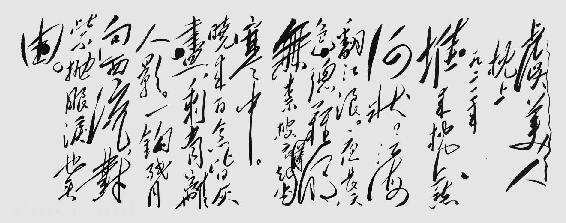 虞美人
枕上
一九二一年
堆来枕上愁
何状？江海
翻波浪。夜长天
色总难明
無奈披衣起坐
寒中。
晓来百念皆灰
尽，剩有离
人影。一钩残月
向西流，對
此不抛眼泪也無
由。